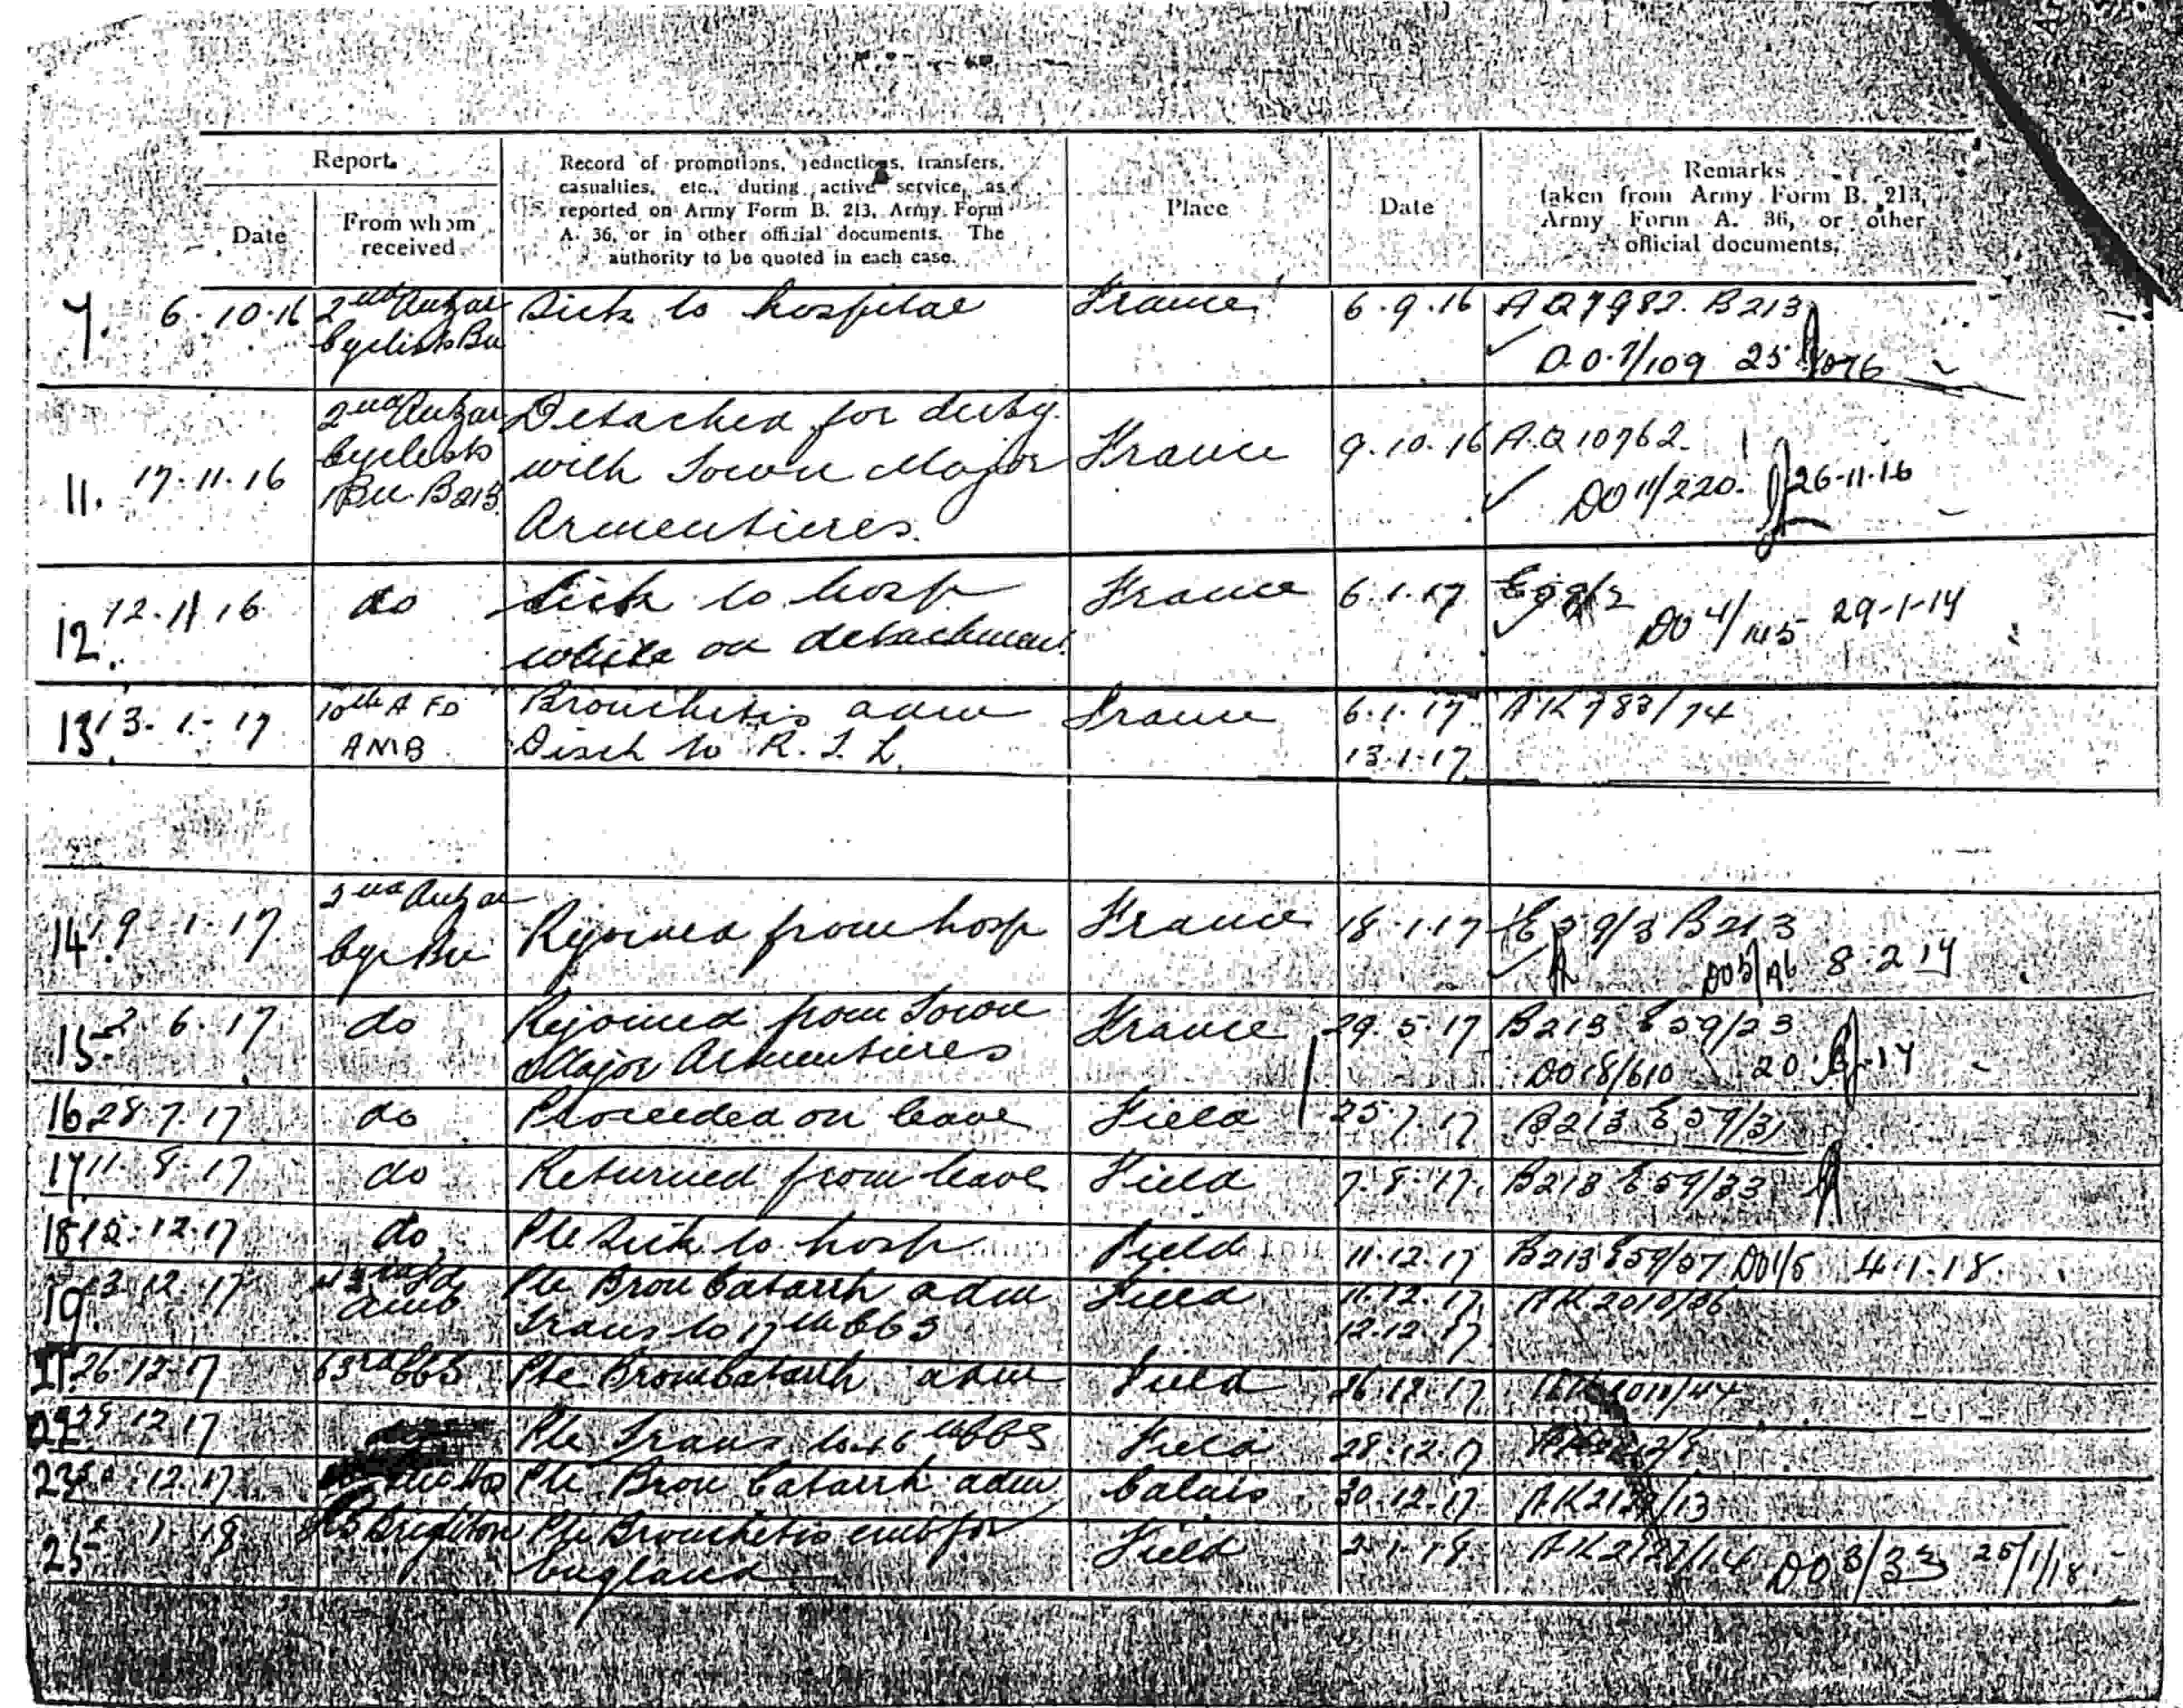 Report.
Record of promotions, reductions, transfers,
casualties, etc., during active service, as
reported on Army Form B. 213, Army Form
A. 36, or in other official documents. The
authority to be quoted in each case.
Place
Date
Remarks
taken from Army Form B. 213,
Army Form A. 36, or other
official documents.
Date
From whom
received
7. 6.10.16 2nd Anzac Sick to hospital France 6.9.16 AQ7982. B213
Cyclists Bn DO.7/109 25
11. 17.11.16 2nd Anzac Detached for duty France 9.10.16 A.Q 10762.
Cyclists with Town Major DO 11/220. 26-11-16
Bn. B213. Armentieres.
12. 12.11 16 do Sick to hosp France 6.1.17
while on detachment DO 4/145 29-1-17
13. 13-1-17 10th A FD Bronchitis adm France 6.1.17 AK783/74
AMB Disch to R.T.L. 13.1.17
14. 19 1.17. 2nd Anzac Rejoined from hosp France 18.1.17 E59/3 B213
Cyc Bn 8.2.17
15. 2.6.17 do Rejoined from Town France 29.5.17 B213 E59/23
Major Armentieres DO18/610 20
16 28.7.17 do Proceeded on leave Field 25.7.17 B213 E59/31
17 11.8.17 do Returned from leave Field 7.8.17. B213 E59/33
18 15.12.17 do Pte Sick to hosp Field 11.12.17 B213 E59/57 DO1/5 4.1.18.
19. 13.12.17 Pte Bron Catarrh adm Field 11.12.17 AK2010/36
amb Trans to 17th CCS 12.12.17
21. 26.12.17 63rd CCS Pte Bron Catarrh adm Field 26.12.17
22. 29 12 17 Pte Trans to CCS Field 28.12.17
23 12.17 Pte Bron Catarrh adm Calais 30.12.17
25 1.18 HS Brighton Pte Bronchitis emb for Field 2.1.18 AK2127/14 DO 3/33 25/1/18
England